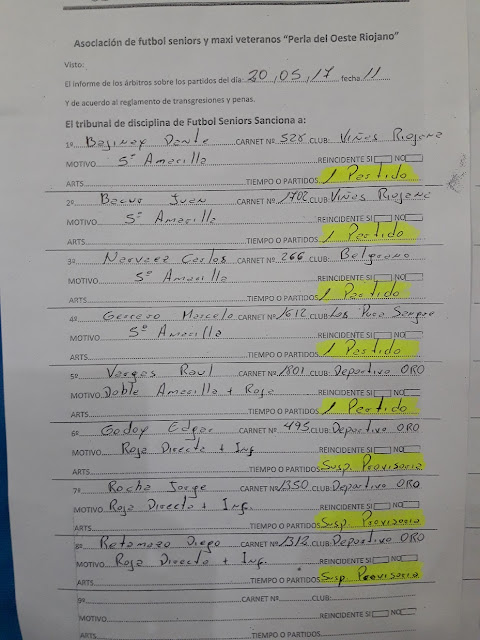 Asociación de futbol seniors y maxi veteranos "Perla del Oeste Riojano"
Visto:
El informe de los árbitros sobre los partidos del día: 20,05,17 fecha 11
Y de acuerdo al reglamento de transgresiones y penas.
El tribunal de disciplina de Futbol Seniors Sanciona a:
1º Dante CARNET Nº 528 CLUB: Viñas Riojana
MOTIVO 5º Amarilla REINCIDENTE SI NO
ARTS TIEMPO O PARTIDOS 1 Partido
2º Juan CARNET Nº 1702 CLUB: Viñas Riojana
MOTIVO 5º Amarilla REINCIDENTE SI NO
ARTS TIEMPO O PARTIDOS 1 Partido
3º Narvaez Carlos CARNET Nº 266 CLUB: Belgrano
MOTIVO 5º Amarilla REINCIDENTE SI NO
ARTS TIEMPO O PARTIDOS 1 Partido
4º Marcelo CARNET Nº 1612 CLUB: Los Pura Sangre
MOTIVO 5º Amarilla REINCIDENTE SI NO
ARTS TIEMPO O PARTIDOS 1 Partido
5º Vargas Raul CARNET Nº 1801 CLUB: Deportivo ORO
MOTIVO Doble Amarilla + Roja REINCIDENTE SI NO
ARTS TIEMPO O PARTIDOS 1 Partido
6º Godoy Edgar CARNET Nº 495 CLUB: Deportivo ORO
MOTIVO Roja Directa + Inf REINCIDENTE SI NO
ARTS TIEMPO O PARTIDOS Susp. Provisoria
7º Rocha Jorge CARNET Nº 1350 CLUB: Deportivo ORO
MOTIVO Roja Directa + Inf. REINCIDENTE SI NO
ARTS TIEMPO O PARTIDOS Susp. Provisoria
8º Retamozo Diego CARNET Nº 1312 CLUB: Deportivo ORO
MOTIVO Roja Directa + Inf. REINCIDENTE SI NO
ARTS TIEMPO O PARTIDOS Susp. Provisoria
9º CARNET Nº CLUB:
MOTIVO REINCIDENTE SI NO
ARTS TIEMPO O PARTIDOS